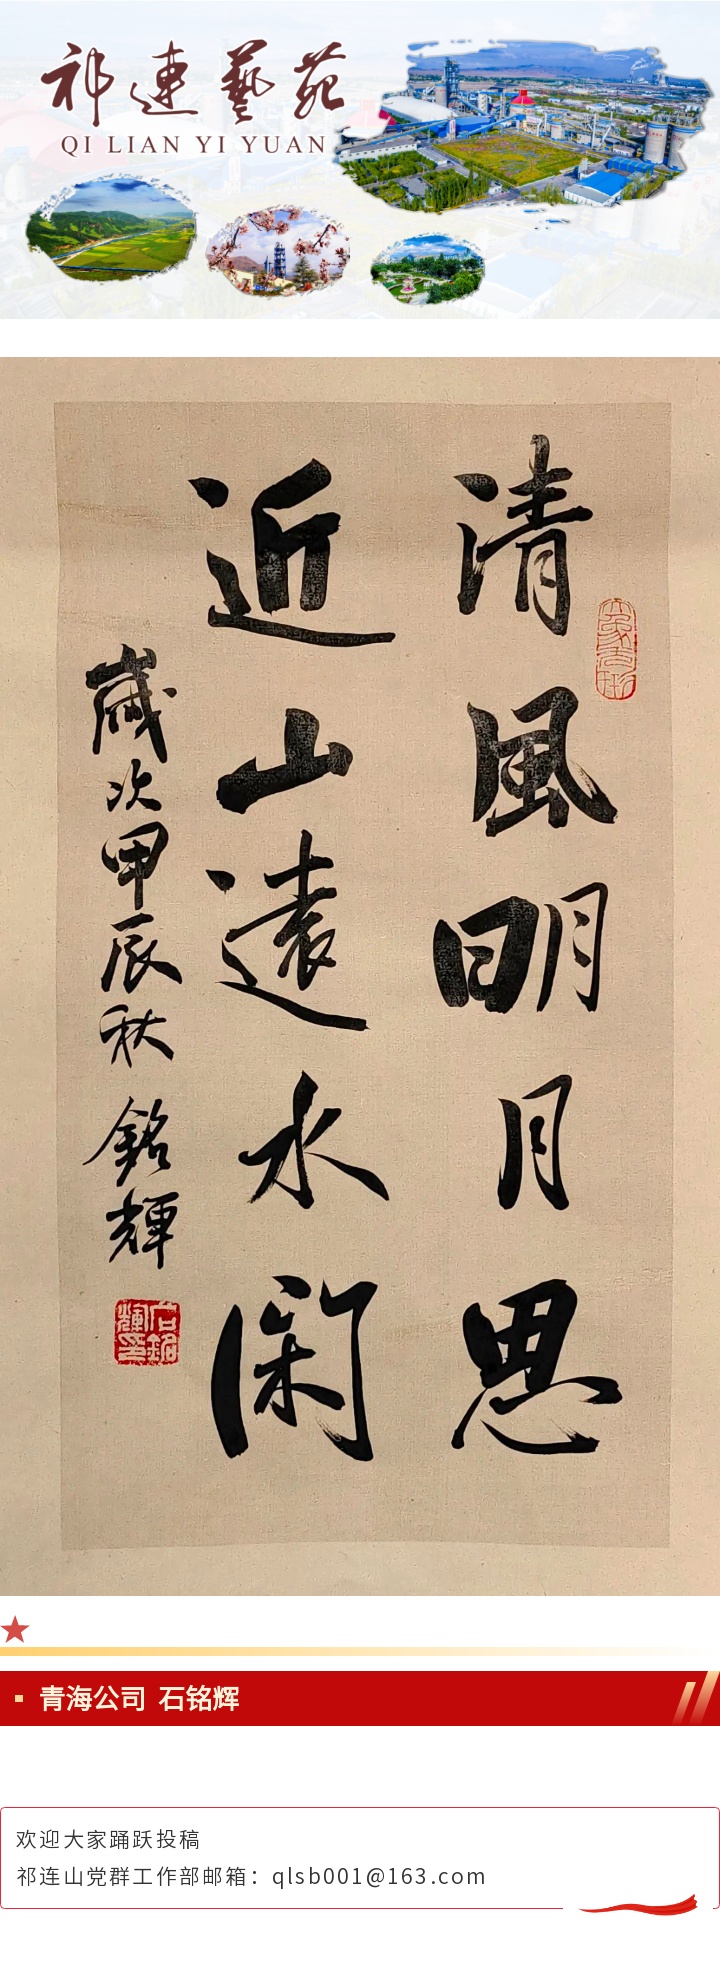 祁连藝苑
QI LIAN YI YUAN
清風明月思
近山遠水閑
歲次甲辰秋 銘輝
石銘輝印
青海公司 石铭辉
欢迎大家踊跃投稿
祁连山党群工作部邮箱：qlsb001@163.com